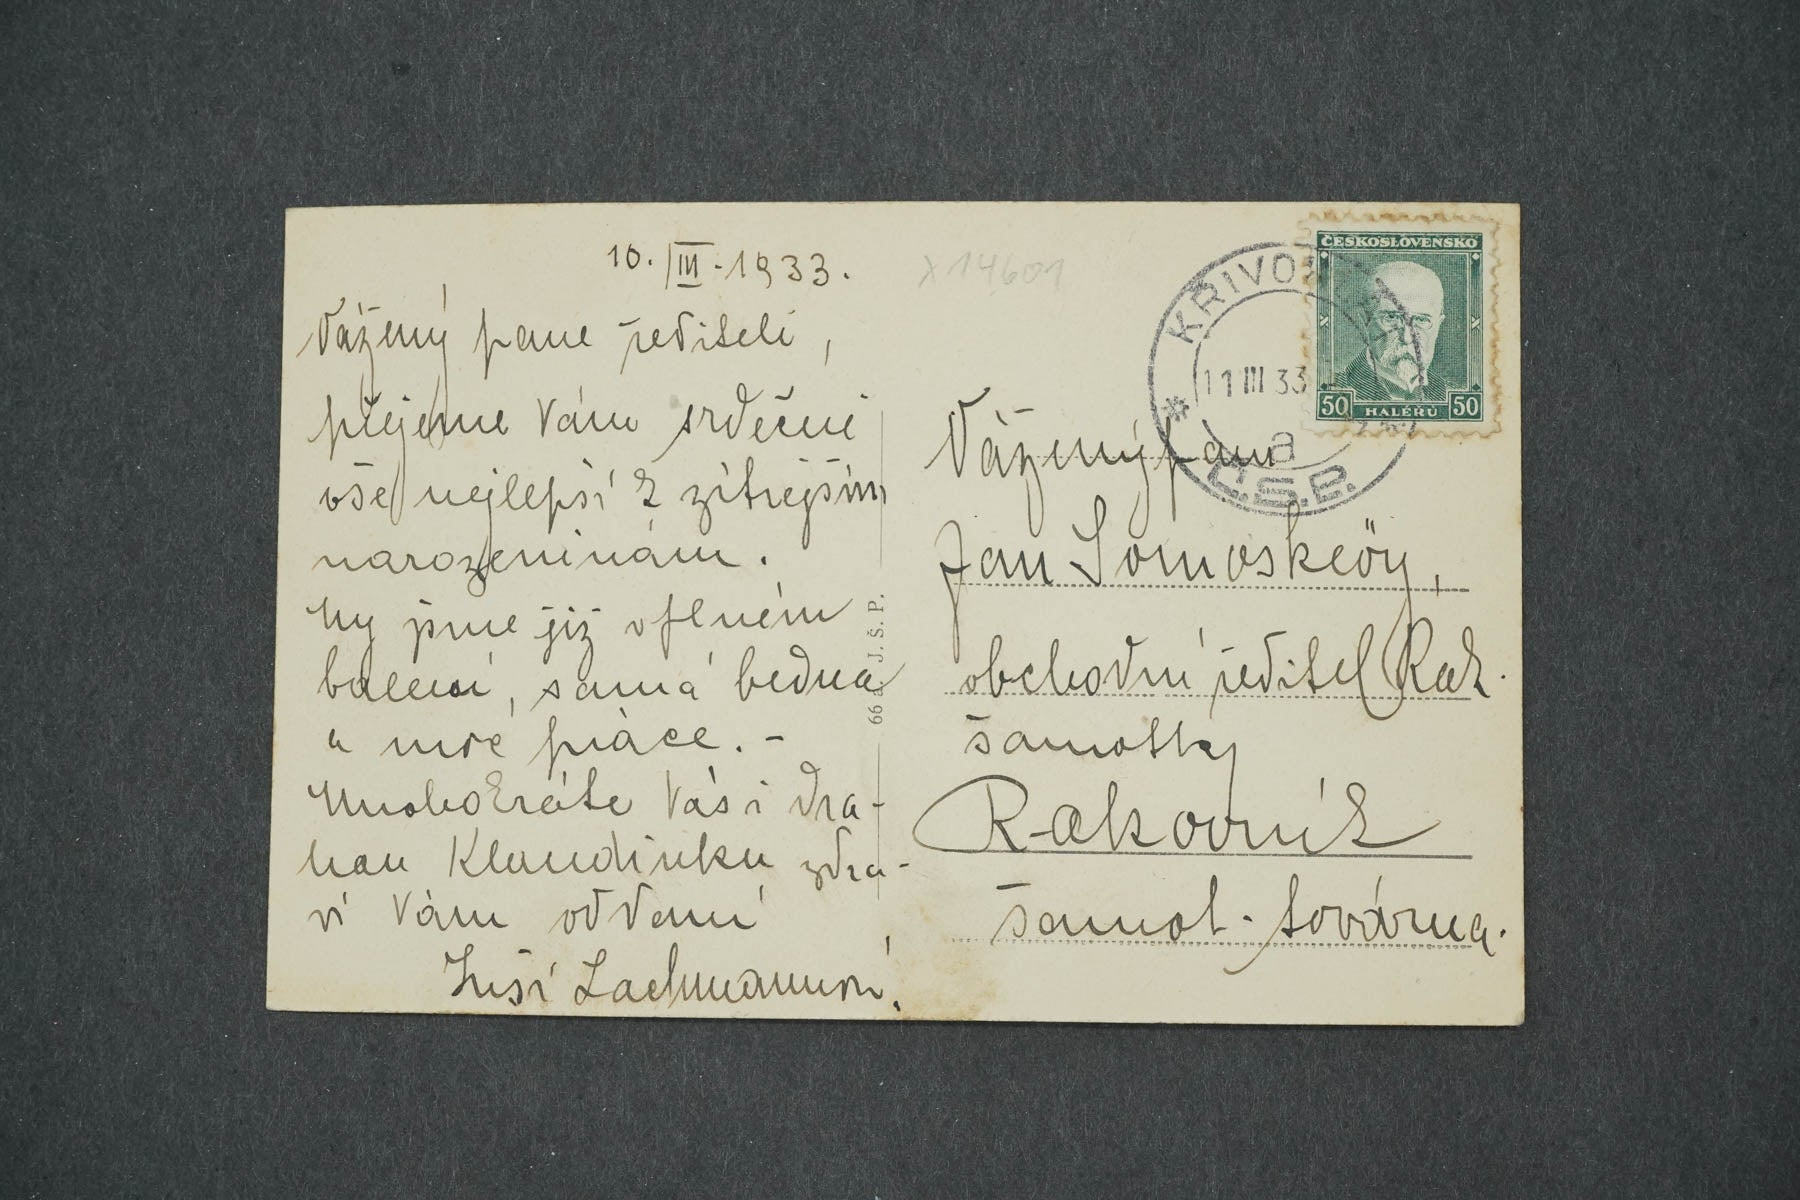 10. III. 1933.
Vážený pane řediteli,
přejeme Vám srdečně
vše nejlepší k zítřejším
narozeninám.
My jsme již v plném
balení, samá bedna
a moře práce. -
Mnohokráte Vás i dra-
hou Klaudinku zdra-
ví Vám oddaní
Lachmannovi.
66 J. Š. P.
X 14601
KŘIVO
11 III 33
a
Č.S.P.
ČESKOSLOVENSKO
50 HALÉŘŮ 50
Vážený pan
Jan Somoskeöy,
obchodní ředitel Rak.
šamotky
Rakovník
šamot. továrna.